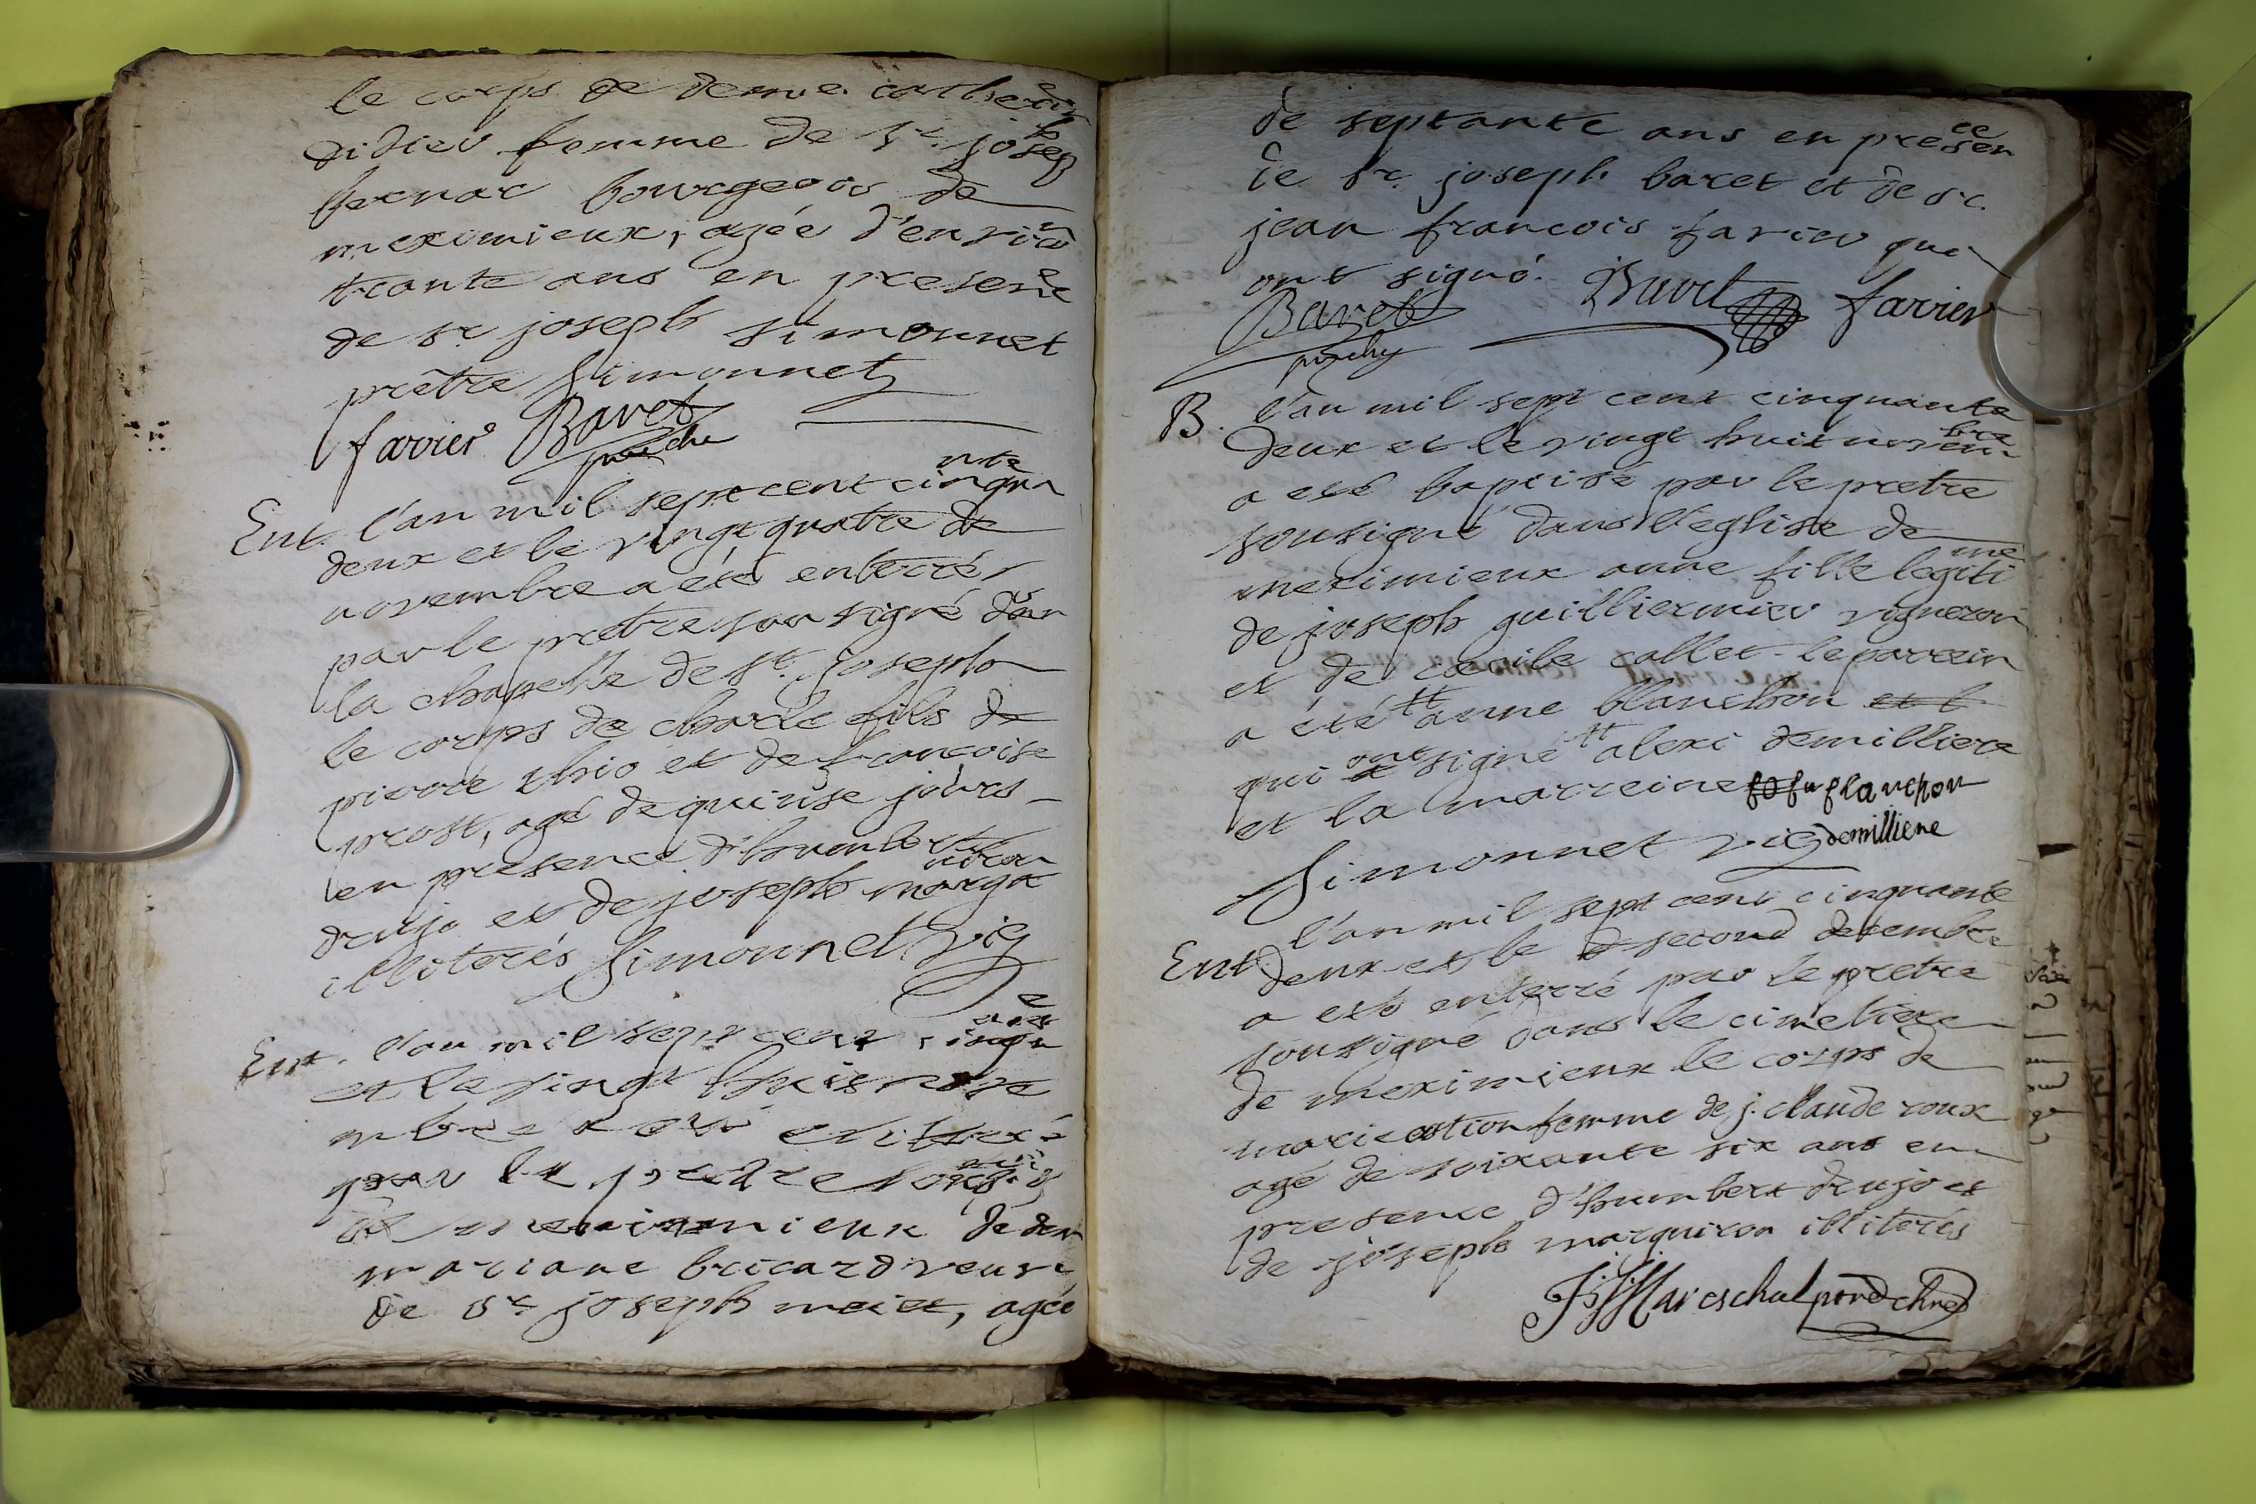 le corps de demoe. catherine
didier femme de Sr. joseph
bernar bourgeois de
meximieux, agée d'environ
trante ans en presence
de sr joseph simonnet
prêtre Simonnet
farrier Bavet
Ent. l'an mil sept cent cinquante
deux et le vingt quatre de
novembre a été enterré
par le pretre sousigné dan
la chapelle de st. joseph
le corps de charle fils de
pierre thio et de francoise
prost, agé de quinse jours
en presence d'humbert
drujo et de joseph marguiron
illiterés Simonnet vic
Ent. l'an mil sept cent cinquante
et le vingt huit nove
mbre a été enterré
par le pretre sousigné
de meximieux de dem
mariane bricard veuve
de sr joseph meiet, agée
de septante ans en presence
de sr. joseph baret et de sr.
jean francois farier qui
ont signé. Buvet farrier
Bavet
B. l'an mil sept cent cinquante
deux et le vingt huit novembre
a eté baptisé par le pretre
sousigné dans l'eglise de
meximieux anne fille legitime
de joseph guilliermier vigneron
et de cecile collet le parrein
a été tt anne blanchon et l
qui ont signé tt alexi demilliere
et la marreine blanchon
Simonnet vic demilliere
l'an mil sept cent cinquante
Ent. deux et le d second decembre
a eté enterré par le pretre
sousigné dans le cimetiere
de meximieux le corps de
marie cotion femme de j. claude roux
agé de soixante six ans en
presence d'humbert drujo et
de joseph marguiron illiterés
Mareschal